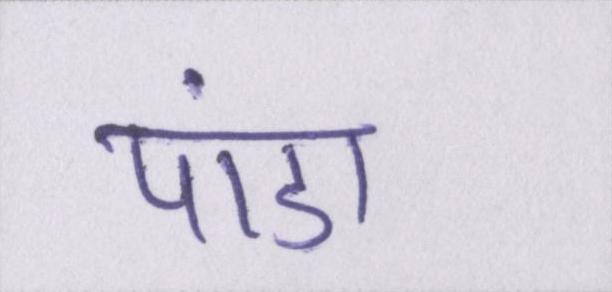 पांडा